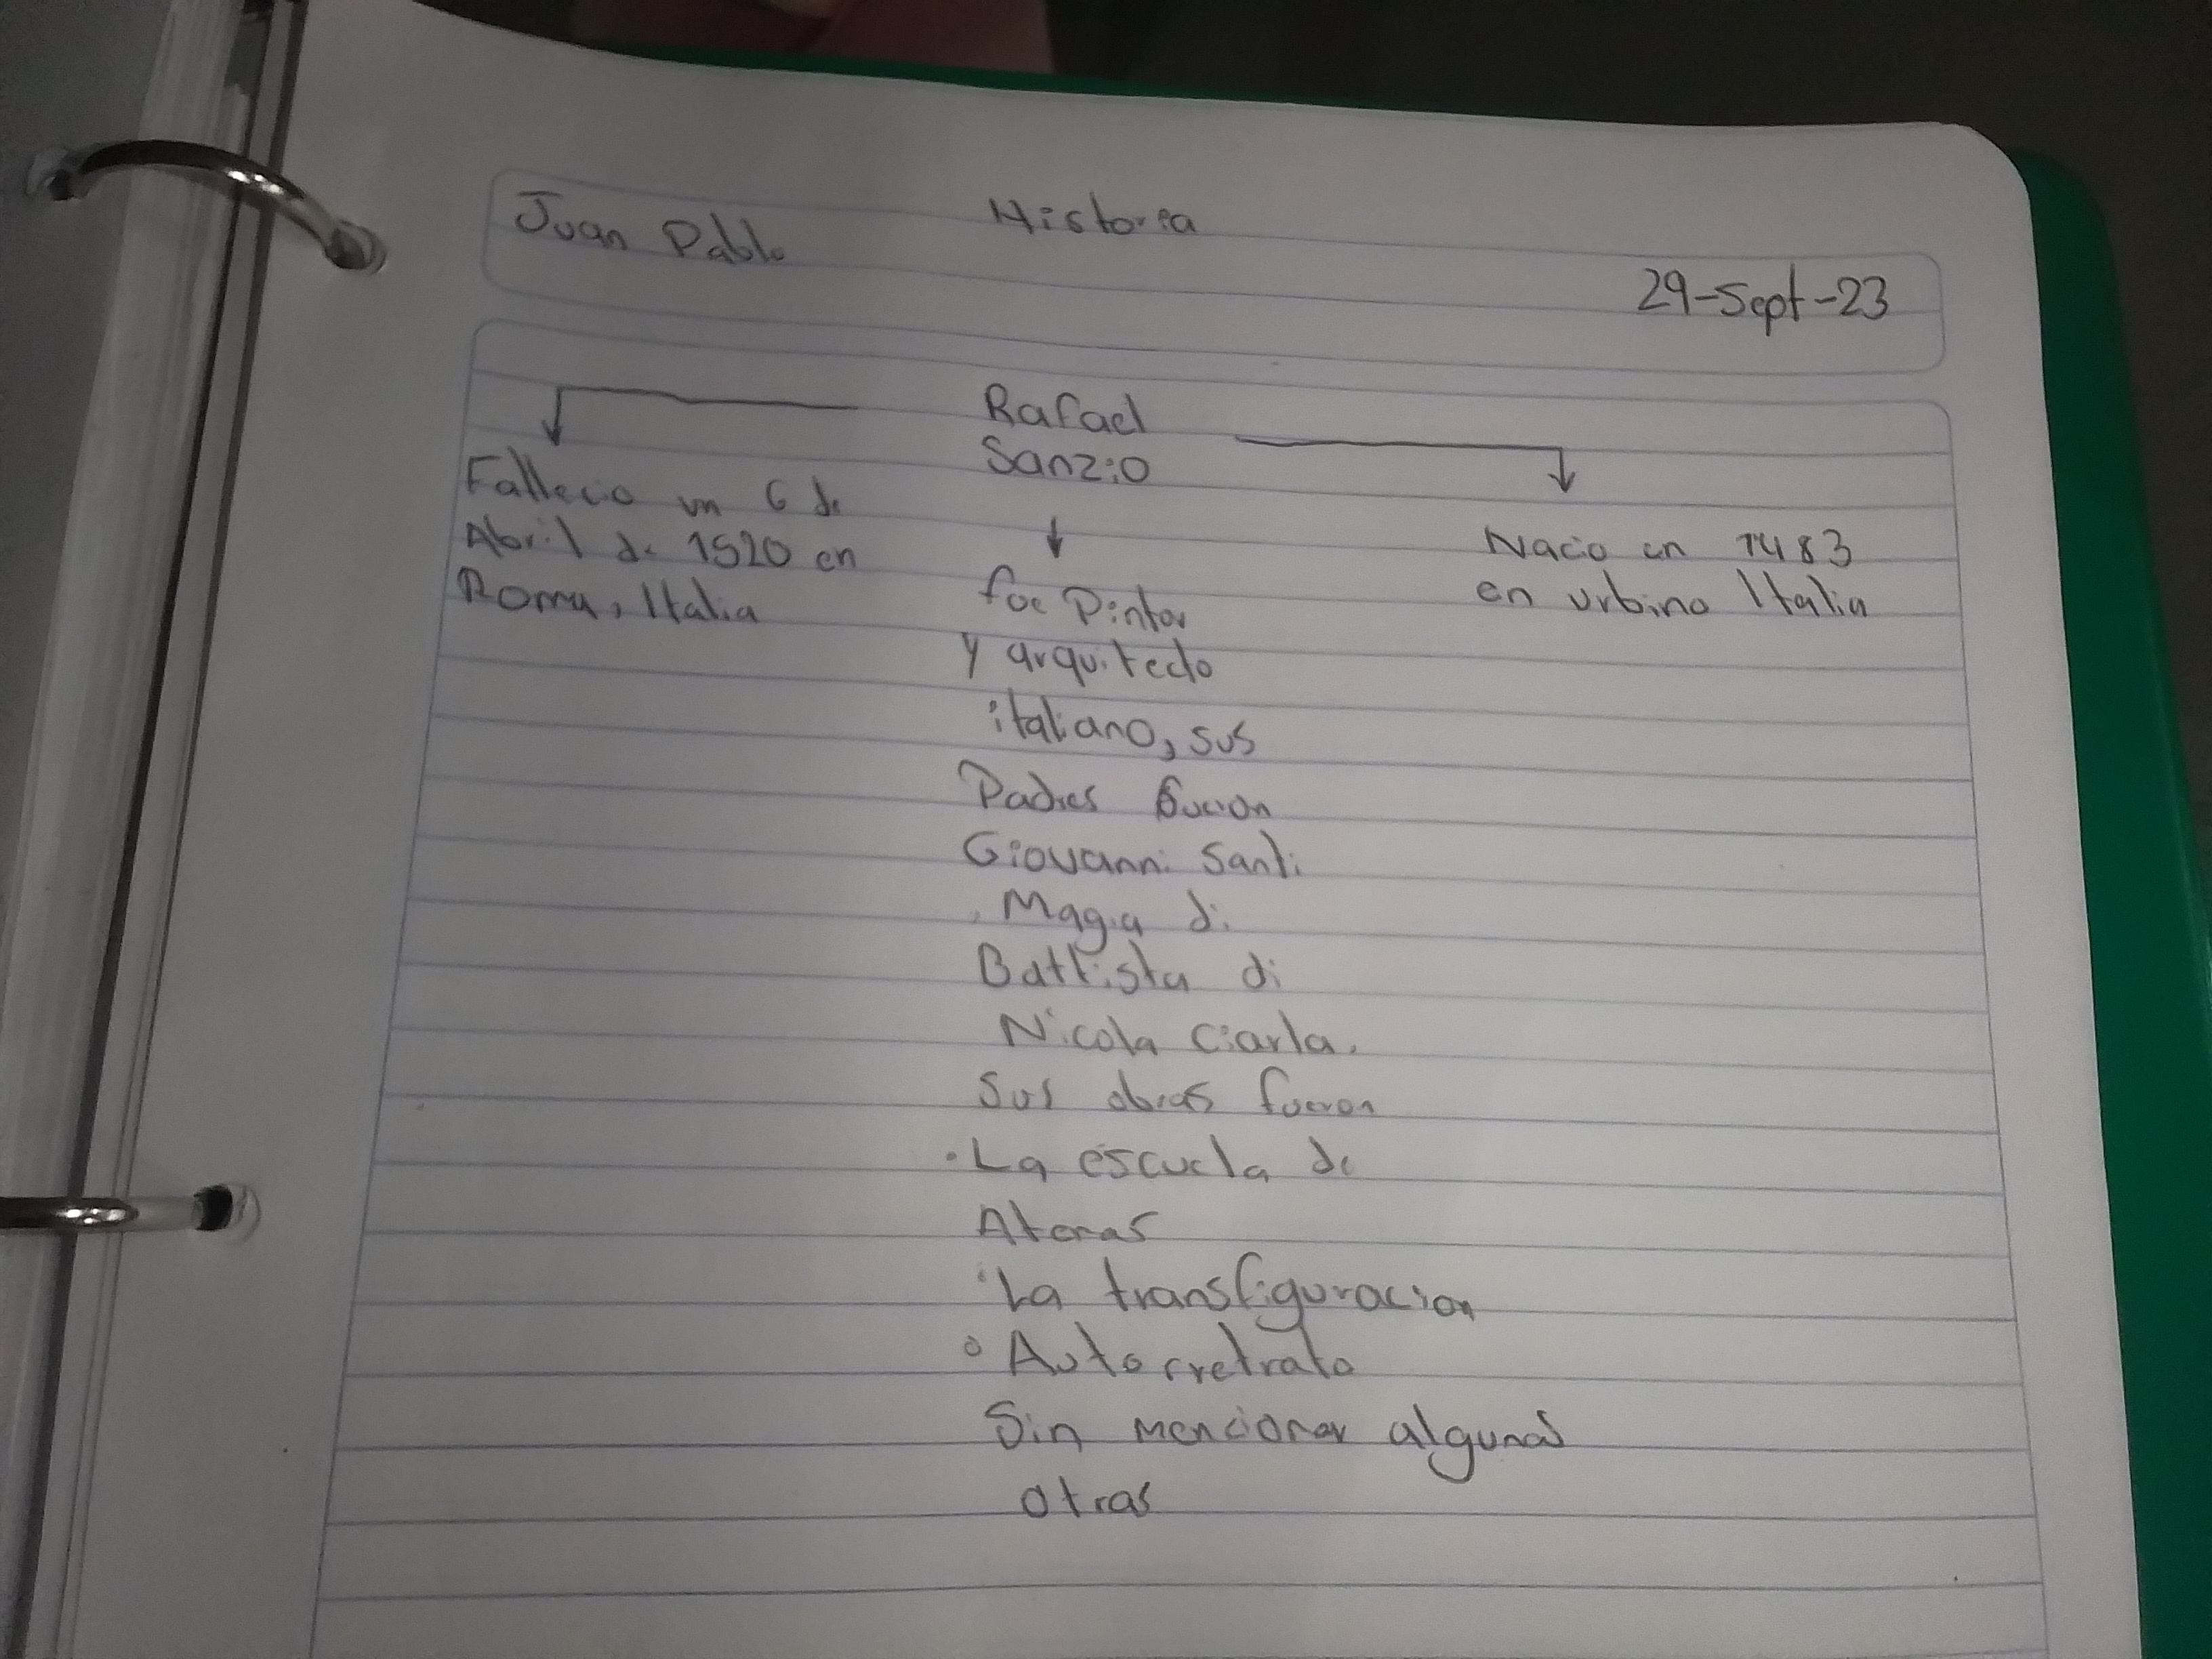 Juan Pablo
Historia
29-Sept-23
Rafael
Sanzio
Fallecio un 6 de
Abril de 1520 en
Roma, Italia
fue Pintor
y arquitecto
italiano, sus
Padres fueron
Giovanni Santi
, Magia di
Battista di
Nicola Ciarla.
Sus obras fueron
• La escuela de
Atenas
• La transfiguracion
• Autorretrato
Sin mencionar algunas
otras
Nacio en 1483
en urbino Italia